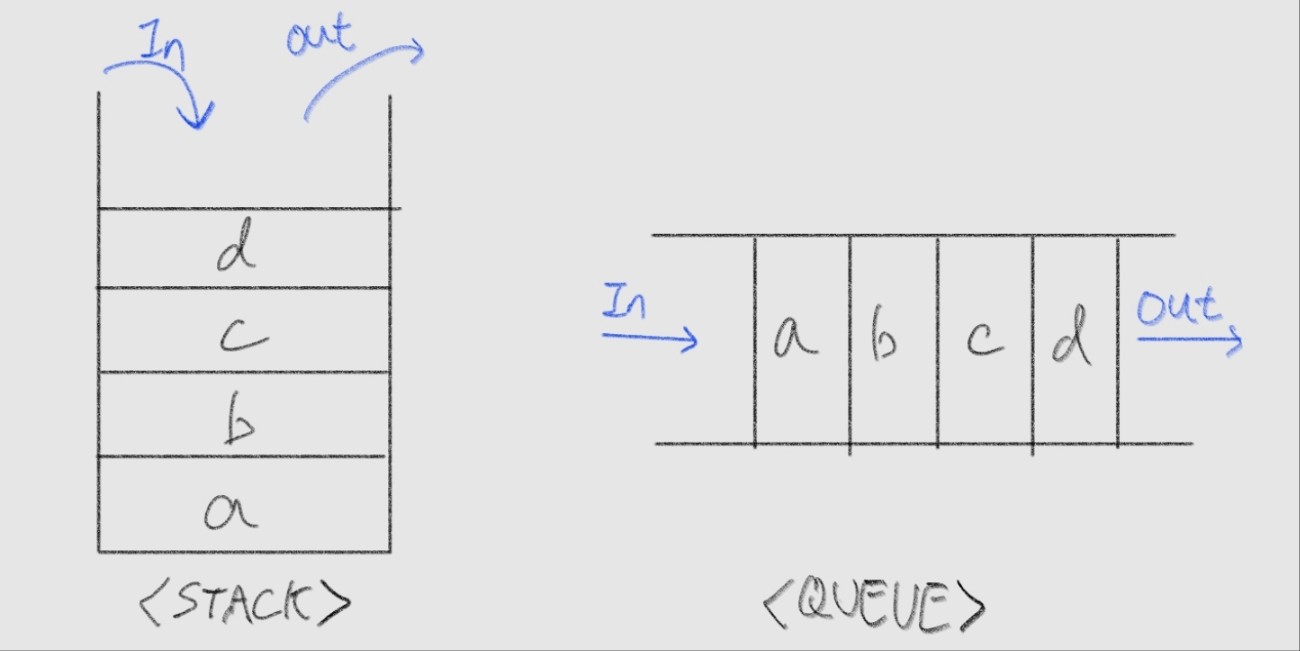 In
out
d
c
b
a
<STACK>
In
a b c d
out
<QUEUE>